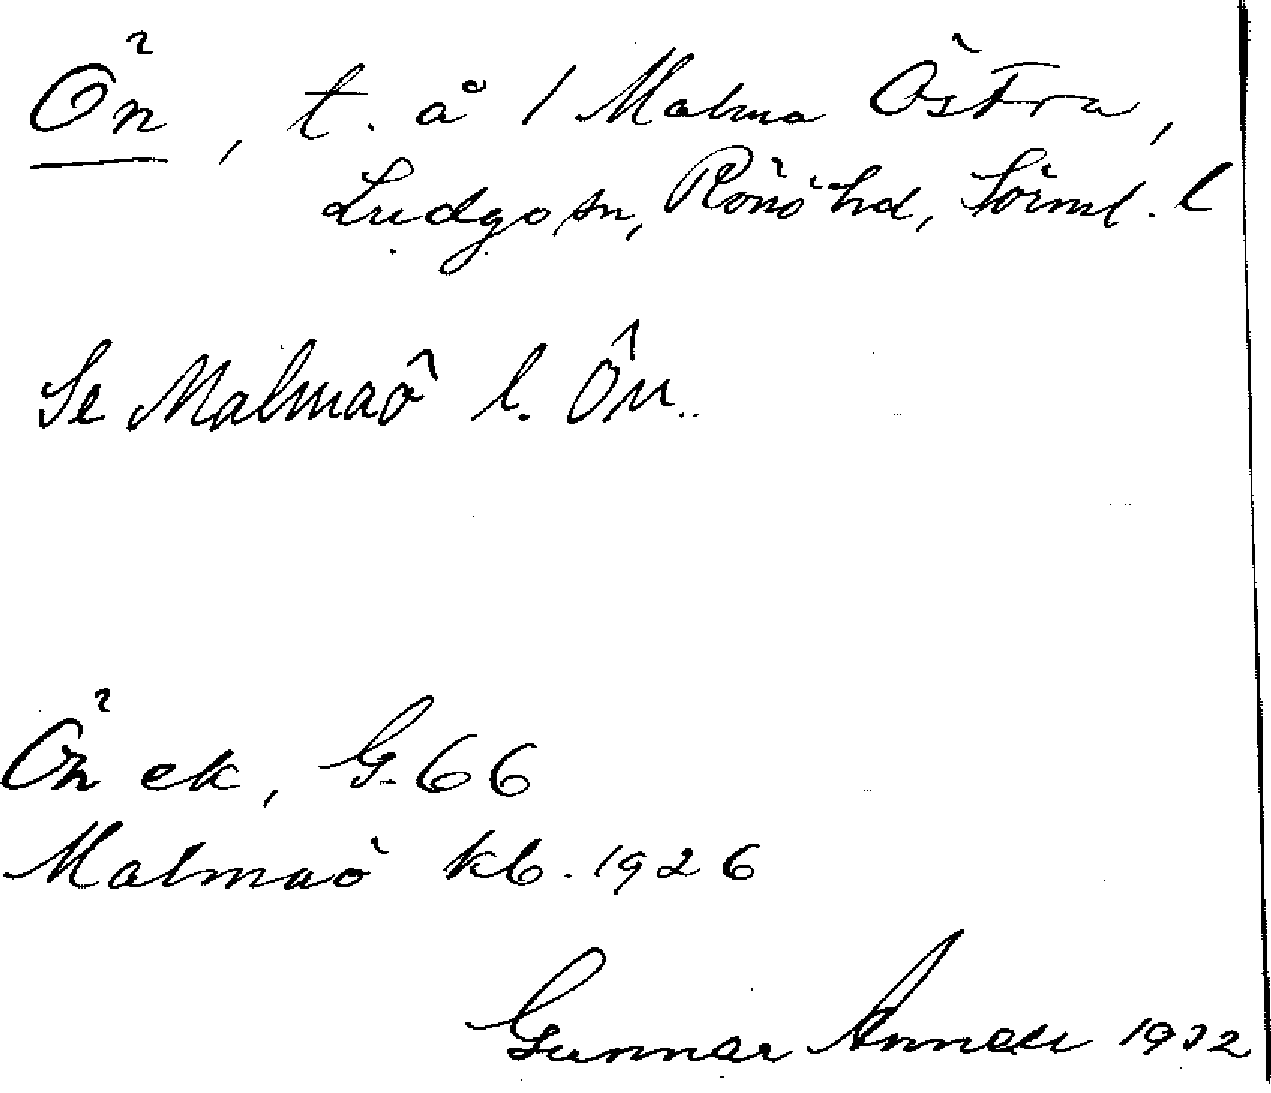 Ön, t. å 1 Malma Östra,
Ludgo sn, Rönö hd, Sörml. l
Se Malmaö l. Ön.
Ön ek, G. 66
Malmaö kb. 1926
Gunnar Annell 1932